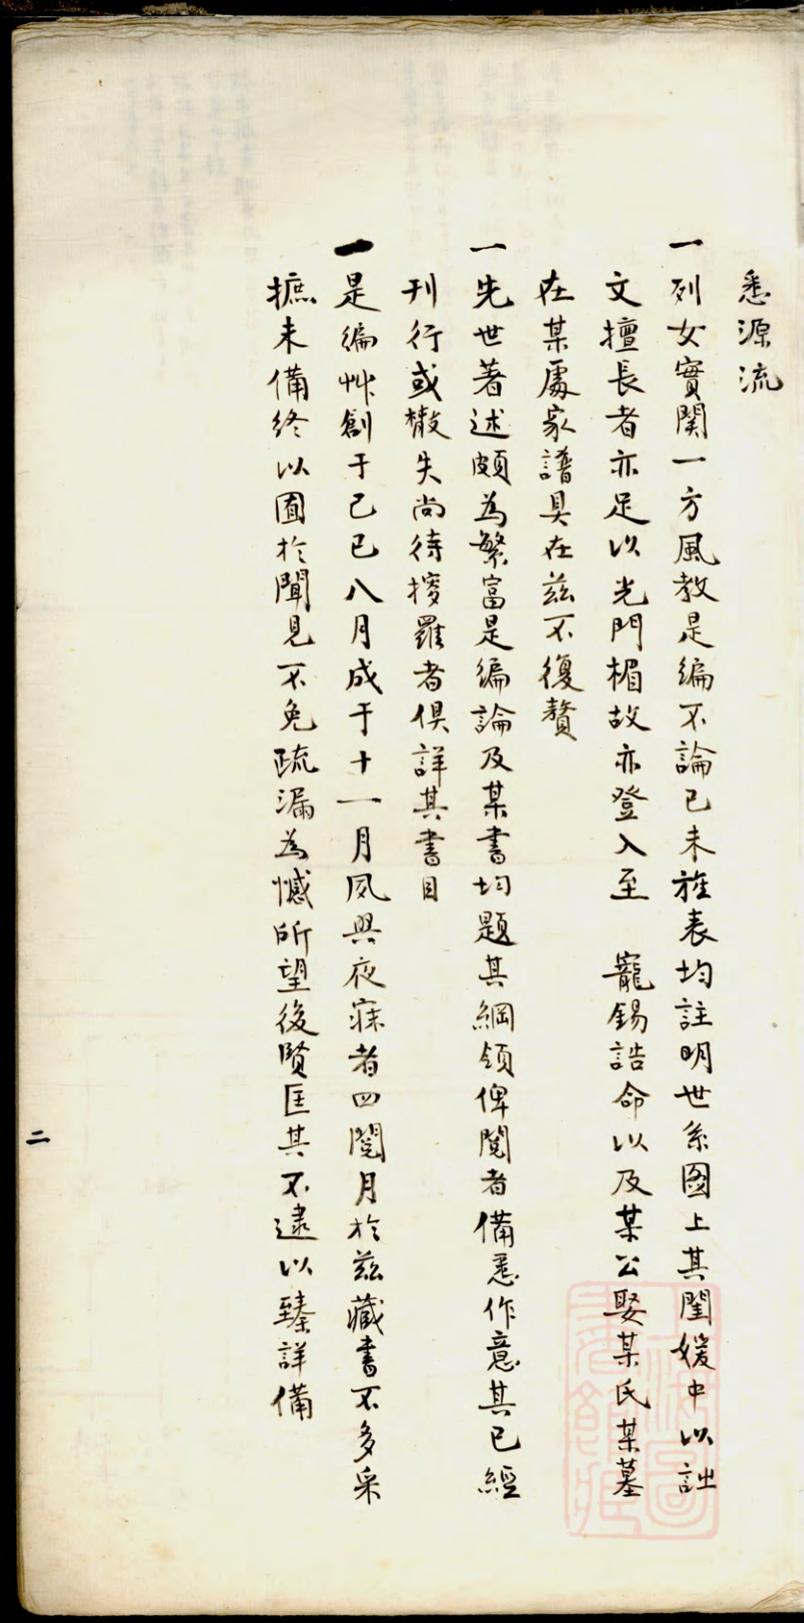 悉源流
一列女實関一方風教是編不論已未旌表均註明世系圖上其閨媛中以詩
文擅長者亦足以光門楣故亦登入至　寵錫誥命以及某公娶某氏某墓
在某處家譜具在茲不復贅
一先世著述頗為繁富是編論及某書均題其綱領俾閱者備悉作意其已經
刊行或散失尚待搜羅者俱詳其書目
一是編艸創于己巳八月成于十一月夙興夜寐者四閱月於茲藏書不多采
摭未備終以囿於聞見不免疏漏為憾所望後賢匡其不逮以臻詳備
二